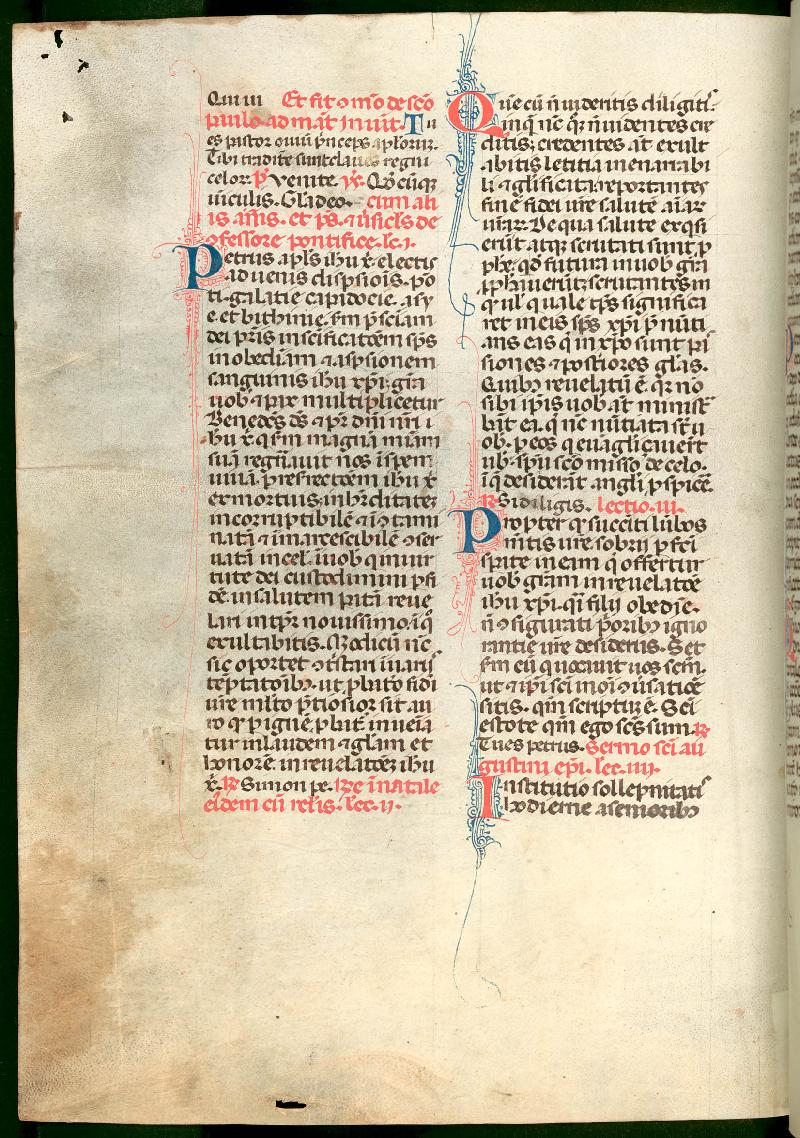 Qui ui Et fit ɔmo de sco
paulo. ad mat Inuit. Tu
es pastor ouiu princeps aplorum.
Tibi tradite sunt claues regni
celor. ps venite ỹ. Qdcuqe
uiculis. Gladeo. cum ali
is añis. et ps. ⁊ ũsicls de
ɔfessore pontifice. lc. i.
Petrus apls ihu x̃. electis
aduenis dispsiois. po
ti. galatie capidocie. asy
e. et bithinie. sm psciam
dei pris in scificatoem sps
in obediam ⁊ aspsionem
sanguinis ihu xpi. gra
uob ⁊ pax multiplicetur
Benedcs ds ⁊ pr dni nri i
hu x̃ q sm magna miam
sua regñauit nos i spem
uiua. p resrectoem ihu x̃
ex mortuis. in hrditatez
incorruptibile ⁊ iɔtami
nata ⁊ inmarcescibile ɔser
uata in cel. i uob q in uir
tute dei custodimini p fi
de. in salutem pata reue
lari in tpr nouissimo. i q
exultabitis. Modicu nc
sic oportet ɔtstari in uariis
teptatoibz. ut pbato fidi
ure mlto ptiosior sit au
ro q p igne pbat. inueia
tur in laudem ⁊ glam et
honore. in reuelatoez ihu
x̃. R Simon pe. Re i natile
eidem cu relis. lec. ii.
Que cu ñ uideritis diligiti
in que nc qz ñ uidentes cre
ditis; credentes at exult
abitis letitia inenarrabi
li ⁊ glificata. reportantes
fine fidei ure salute aiar
urar. De qua salute exqsi
erut atqz scrutati sunt p
phe. qd futura in uob gra
pphauerut; scrutantes in
q ul quale tps significa
ret in eis sps xpi p nuti
ans eas q in xpo sunt pa
siones ⁊ postiores glas.
Quibz reuelatu e. qr no
sibi ipis uob at minist
bat ea. q nc nutiata st u
ob. p eos q euaglicauert
ub. spu sco misso de celo.
i q desiderat angli pspice.
R Si diligis. lectio. iii.
Propter q succiti lubos
mtis ure sobrii pfci
sprite in eam q offertur
uob gram in reuelatoe
ihu xpi. qi filij obedie.
ñ ɔfigurati poribz igno
rantie ure desideriis. Set
sm eu q uocauit uos scm.
ut ⁊ ipi sci in oi ɔuisatioe
sitis. qm scriptu e. Sci
estote qm ego scs sum. R
Tu es petrus. Sermo sci au
gustini epi. lec. iiij.
Institutio sollepnitati
hodierne a senioribz